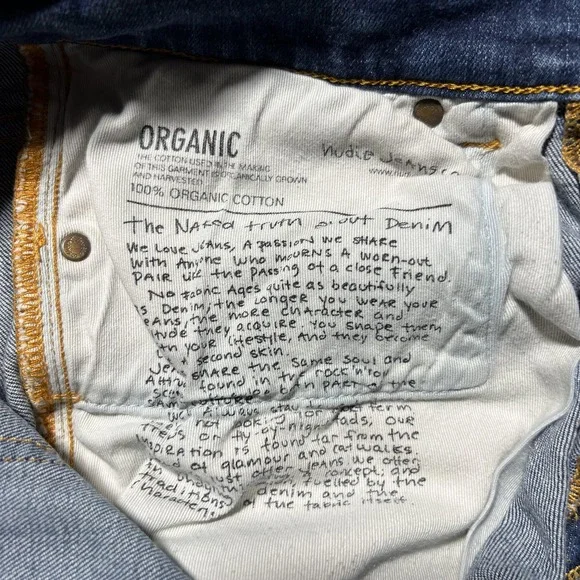 ORGANIC
THE COTTON USED IN THE MAKING
OF THIS GARMENT IS ORGANICALLY GROWN
AND HARVESTED
100% ORGANIC COTTON
nudie jeans co
www.nud
The Naked truth about Denim
We Love Jeans, A passion we share
with Anyone who mourns a worn-out
pair like the passing of a close friend.
No fabric Ages quite as beautifully
as Denim, the Longer you wear your
jeans, the more character and
they acquire. You shape them
your Lifestyle, And they become
second skin.
share the same soul and
found in the rock'n'roll
the
Always stay
not looking for
trends or fly-by-night fads, our
inspiration is found far from the
of glamour and catwalks.
jeans we offer
concept; and
traditions, fuelled by the
denim and the
character of the fabric itself.